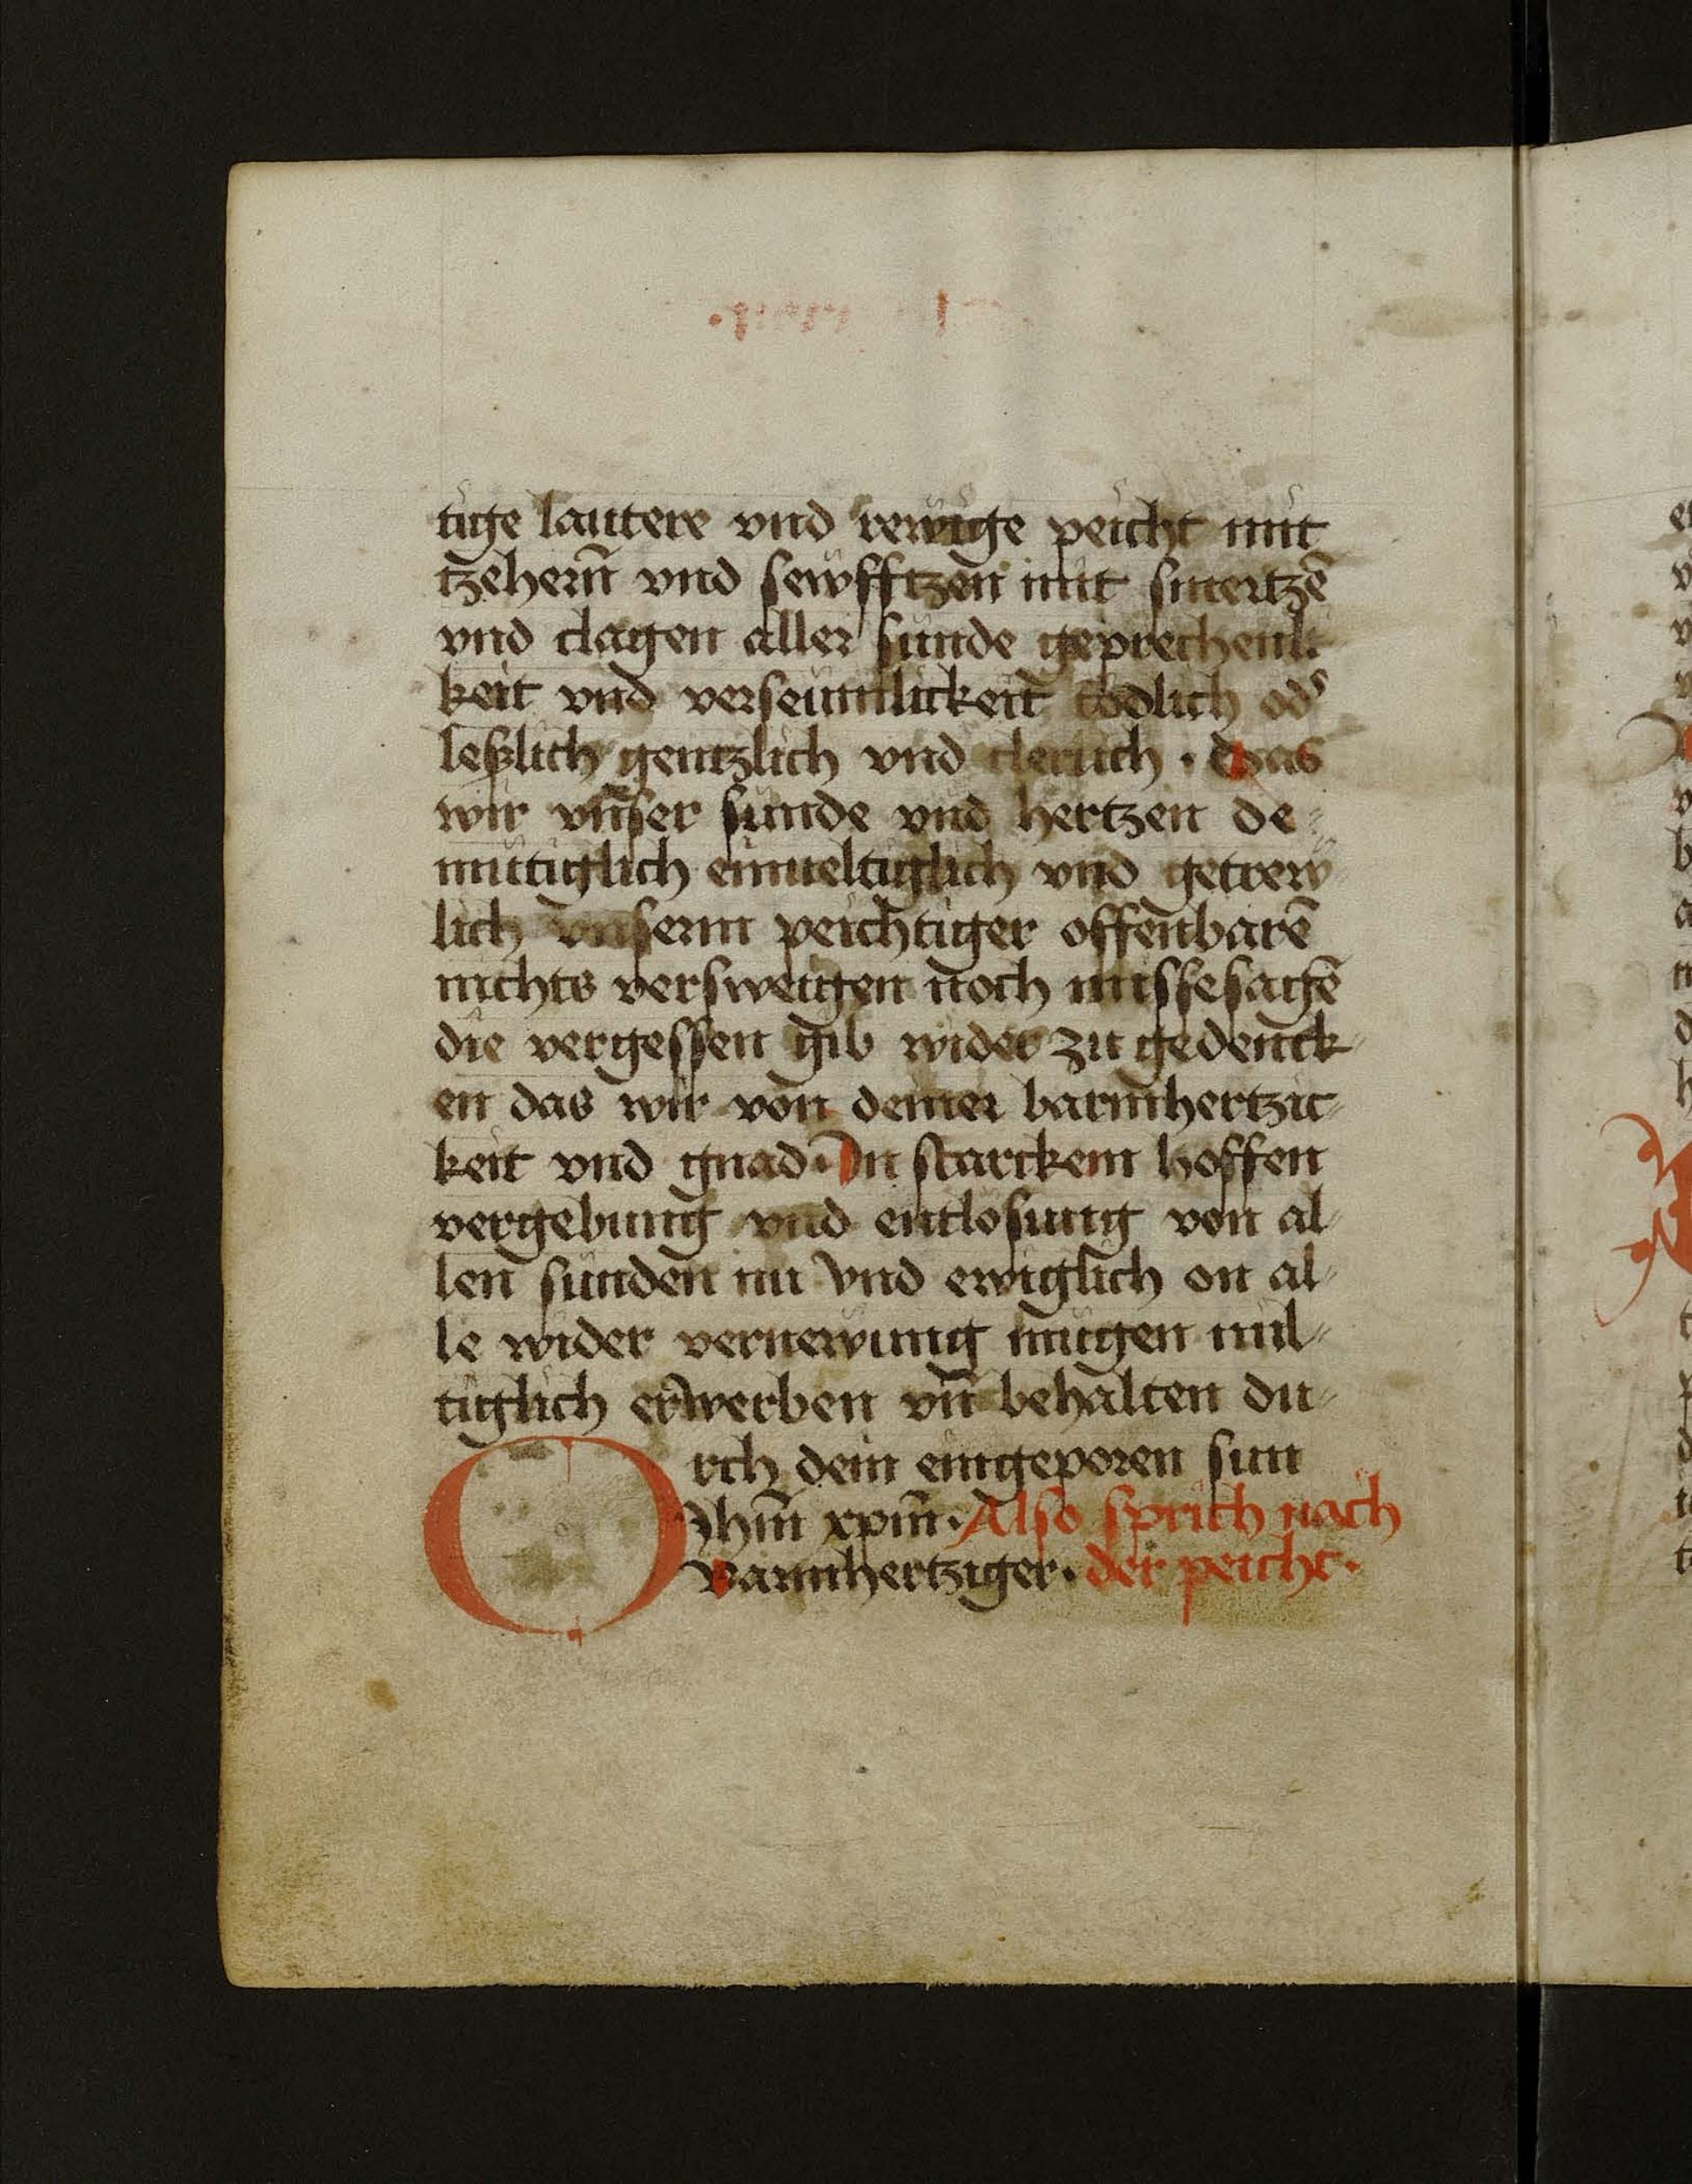 tige lautere vnd rewige peicht mit
tzehern̄ vnd sewfftzen mit smertzē
vnd clagen aller sunde geprechenli
keit vnd verseumlickeit tödlich od᷑
leßlich gentzlich vnd clerlich · Das
wir vnser sunde vnd hertzen de⸗
mütiglich einueltiglich vnd getrew
lich vnserm peichtiger offenbarē
nichts versweigen noch missesagē
die vergessen gib wider zu gedenck⸗
en das wir von deiner barmhertzic⸗
keit vnd gnad · In starckem hoffen
vergebung vnd entlosung von al⸗
len sunden nu vnd ewiglich on al⸗
le wider vernewung mügen mil⸗
tiglich erwerben vn̄ behalten du⸗
rch dein eingeporen sun
Jhm̄ xpm̄ · Also sprich nach
O Barmhertziger · der peicht ·